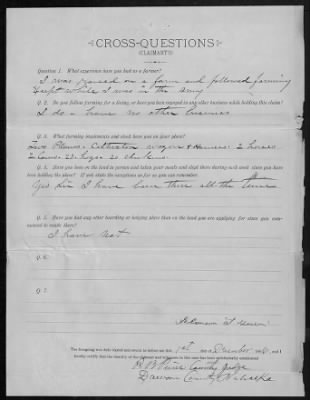 CROSS-QUESTIONS
(CLAIMANT'S)
Question 1. What experience have you had as a farmer?
I was raised on a farm and followed farming
Except while I was in the army
Q. 2. Do you follow farming for a living, or have you been engaged in any other business while holding this claim?
I do - have no other business
Q. 3. What farming implements and stock have you on your place?
two Plows - Cultivator wagon & Harness 2 horses
2 Cows 23 hogs 20 chickens
Q. 4. Have you been on the land in person and taken your meals and slept there during each week since you have
been holding the above? If not state the exceptions as far as you can remember.
Yes Sir I have been there all the time
Q. 5. Have you had any other boarding or lodging place than on the land you are applying for since you com-
menced to reside there?
I have not
Q. 6.
Q. 7.
Solomon
The foregoing was duly signed and sworn to before me this 1st day December, and I
hereby certify that the identity of the claimant and witnesses in this case has been satisfactorily established.
County Judge
Dawson County Nebraska